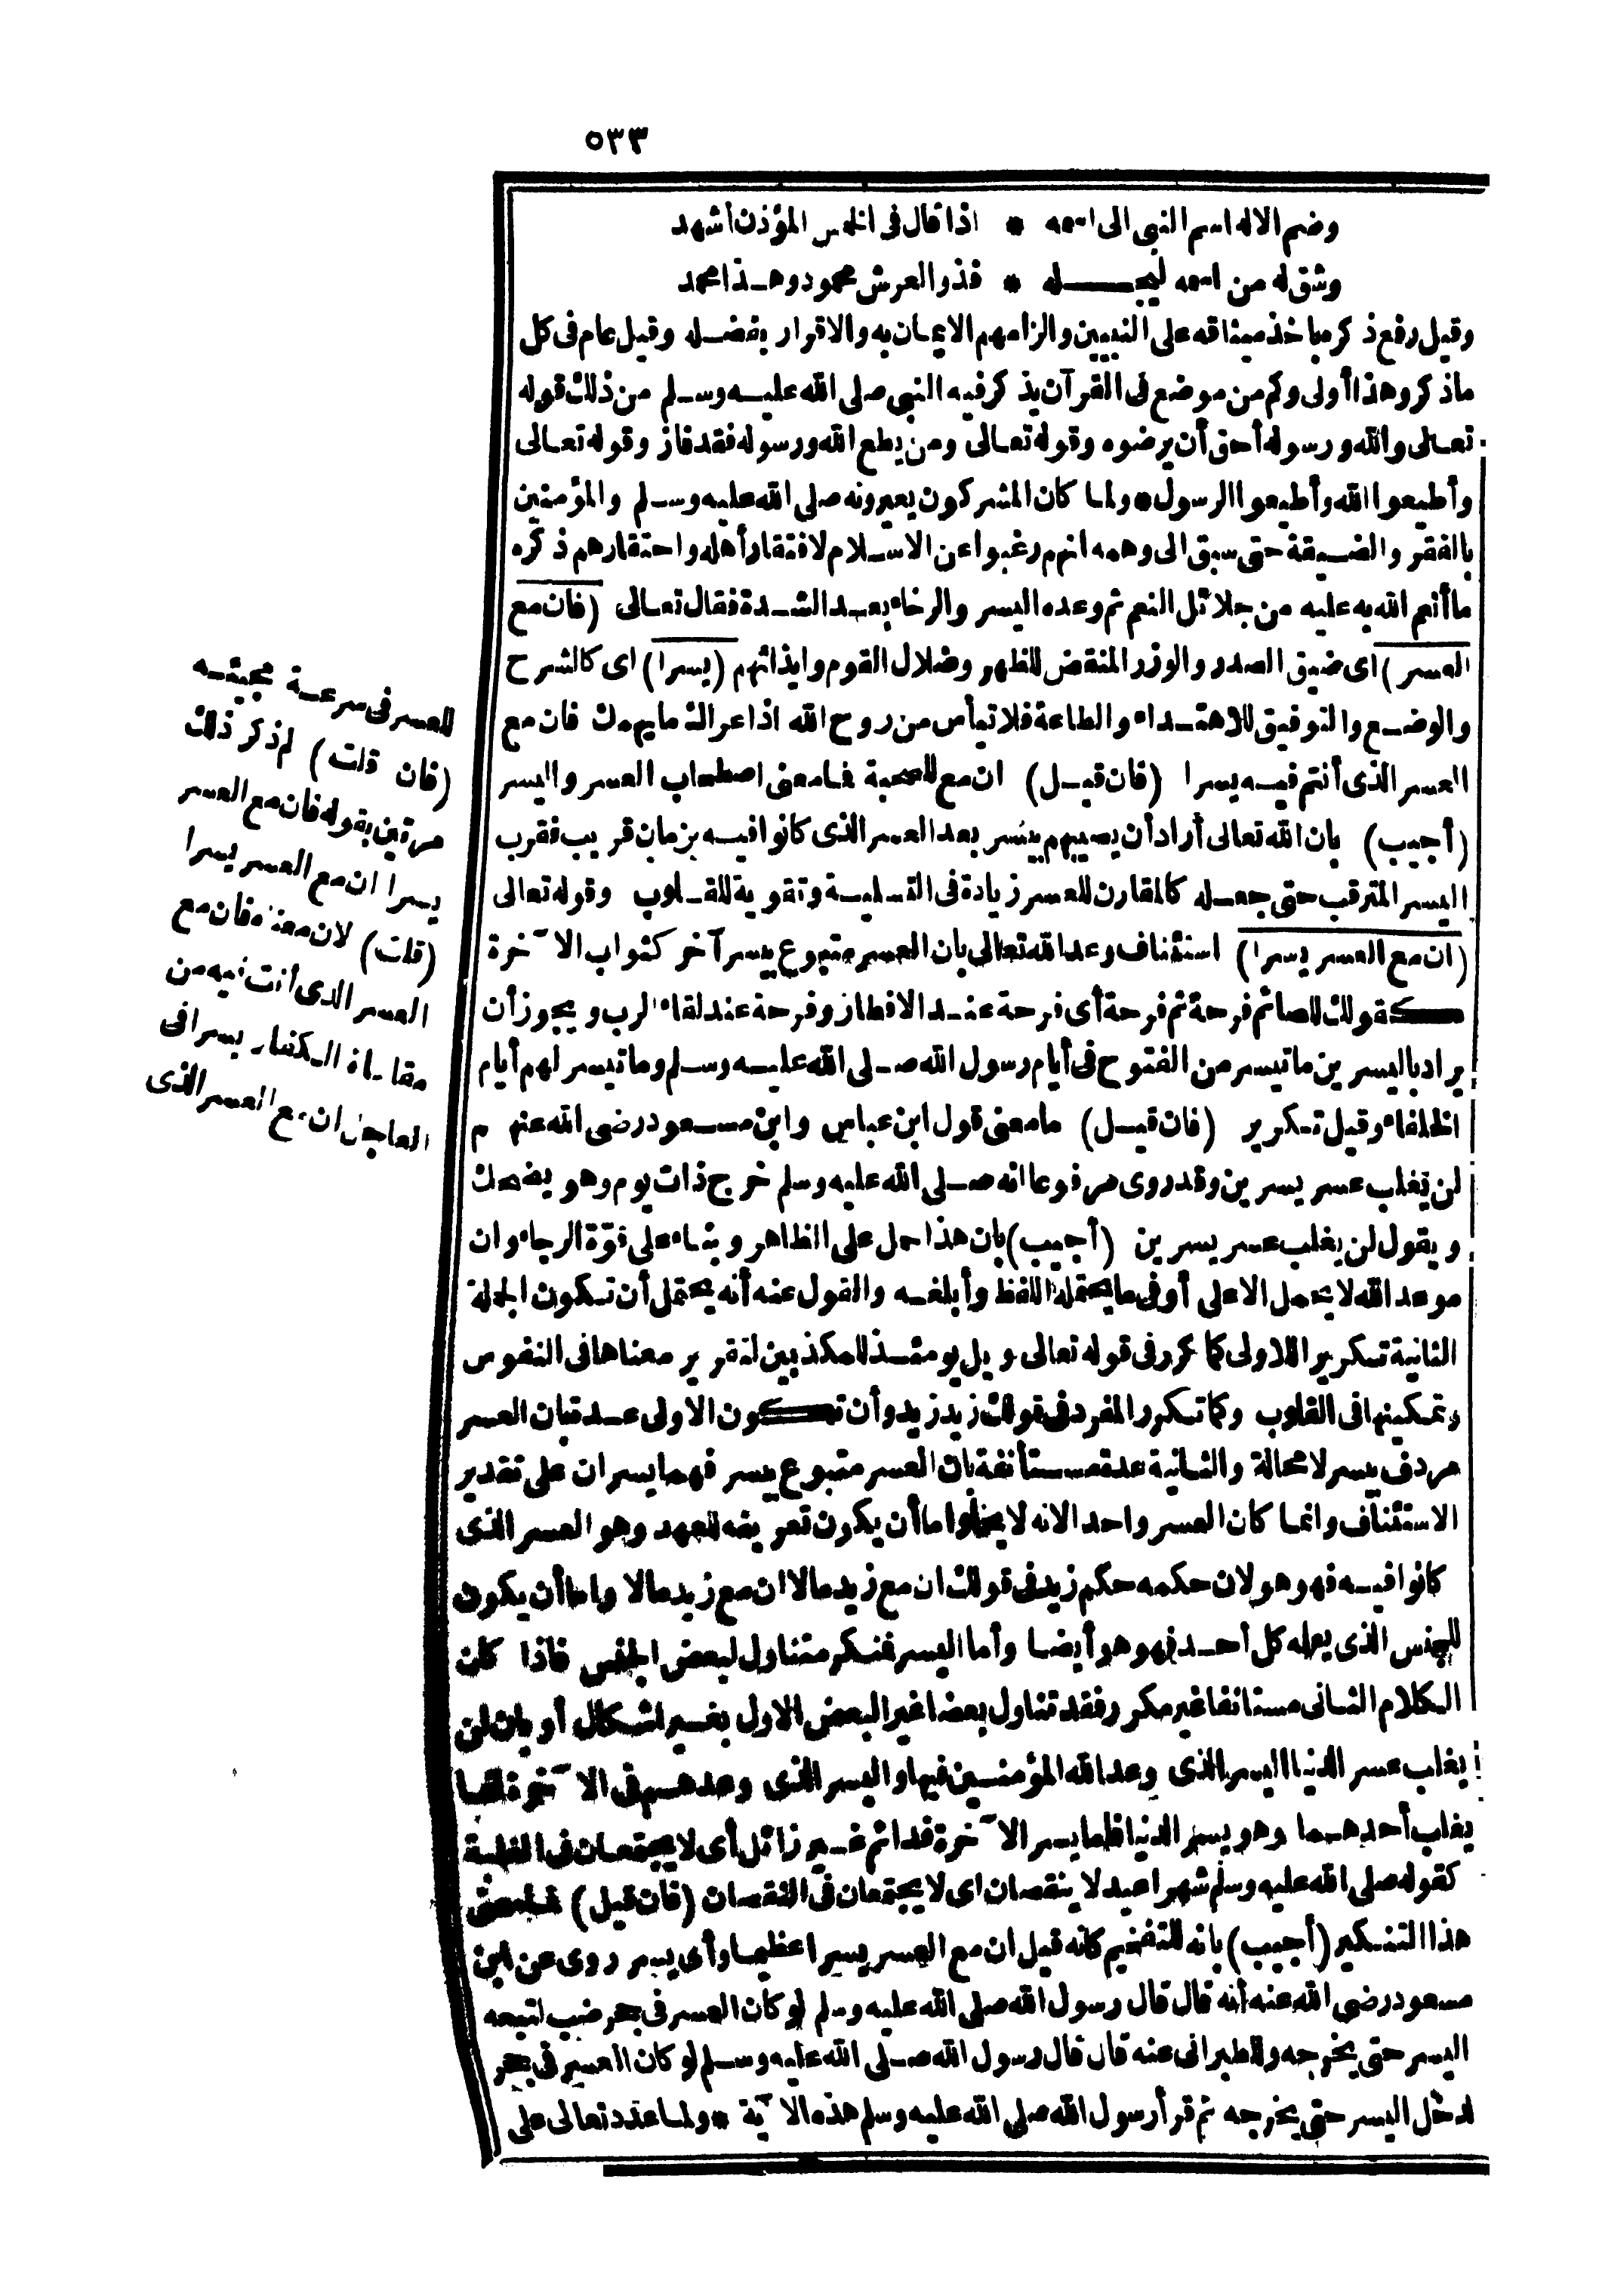 ٥٣٣
وضم الاله اسم النبي الى اسمه * اذا قال فى الخمس المؤذن أشهد
وشق له من اسمه ليجله * فذو العرش محمود وهذا محمد
وقيل رفع ذكره باخذ ميثاقه على النبيين والزامهم الايمان به والاقرار بفضله وقيل عام فى كل
ماذكر وهذا أولى وكم من موضع فى القرآن يذكر فيه النبي صلى الله عليه وسلم من ذلك قوله
تعالى والله ورسوله أحق أن يرضوه وقوله تعالى ومن يطع الله ورسوله فقد فاز وقوله تعالى
وأطيعوا الله وأطيعوا الرسول * ولما كان المشركون يعيرونه صلى الله عليه وسلم والمؤمنين
بالفقر والضيقة حتى سبق الى وهمه انهم رغبوا عن الاسلام لافتقار أهله واحتقارهم ذكره
ما أنعم الله به عليه من جلائل النعم ثم وعده اليسر والرخاء بعد الشدة فقال تعالى (فان مع
العسر) اى ضيق الصدر والوزر المنقض للظهر وضلال القوم وايذائهم (يسرا) اى كالشرح
والوضع والتوفيق للاهتداء والطاعة فلا تيأس من روح الله اذا عراك ما يهمك فان مع
العسر الذى أنتم فيه يسرا (فان قيل) ان مع للصحبة فما معنى اصطحاب العسر واليسر
(أجيب) بان الله تعالى أراد أن يصيبهم بيسر بعد العسر الذى كانوا فيه بزمان قريب فقرب
اليسر المترقب حتى جعله كالمقارن للعسر زيادة فى التسلية وتقوية للقلوب وقوله تعالى
(ان مع العسر يسرا) استئناف وعد الله تعالى بان العسر متبوع بيسر آخر كثواب الآخرة
كقولك للصائم فرحة ثم فرحة أى فرحة عند الافطار وفرحة عند لقاء الرب ويجوز أن
يراد باليسرين ما تيسر من الفتوح فى أيام رسول الله صلى الله عليه وسلم وما تيسر لهم أيام
الخلفاء وقيل تكرير (فان قيل) ما معنى قول ابن عباس وابن مسعود رضى الله عنهم
لن يغلب عسر يسرين وقد روى مرفوعا انه صلى الله عليه وسلم خرج ذات يوم وهو يضحك
ويقول لن يغلب عسر يسرين (أجيب) بان هذا حمل على الظاهر وبناء على قوّة الرجاء وان
موعد الله لا يحمل الا على أوفى ما يحتمله اللفظ وأبلغه والقول عنه أنه يحتمل أن تكون الجملة
الثانية تكريرا للاولى كما كرر فى قوله تعالى ويل يومئذ للمكذبين لتقرير معناها فى النفوس
وتمكينها فى القلوب وكما تكرر المفرد فى قولك زيد زيد وأن تكون الاولى عدة بان العسر
مردف بيسر لا محالة والثانية عدة مستأنفة بان العسر متبوع بيسر فهما يسران على تقدير
الاستئناف وانما كان العسر واحدا لانه لا يخلوا ما أن يكون تعريفه للعهد وهو العسر الذى
كانوا فيه فهو هو لان حكمه حكم زيد فى قولك ان مع زيد مالا ان مع زيد مالا واما أن يكون
للجنس الذى يعلمه كل أحد فهو هو أيضا وأما اليسر فنكر متناول لبعض الجنس فاذا كان
الكلام الثانى مستانفا غير مكرر فقد تناول بعضا غير البعض الاول بغير اشكال أو بان لن
يغلب عسر الدنيا اليسر الذى وعد الله المؤمنين فيها واليسر الذى وعدهم فى الآخرة انما
يغلب أحدهما وهو يسر الدنيا فاما يسر الآخرة فدائم غير زائل أى لا يجتمعان فى الغلبة
كقوله صلى الله عليه وسلم شهرا عيد لا ينقصان اى لا يجتمعان فى النقصان (فان قيل) فما معنى
هذا التنكير (أجيب) بانه للتفخيم كانه قيل ان مع العسر يسرا عظيما وأى يسر روى عن ابن
مسعود رضى الله عنه أنه قال قال رسول الله صلى الله عليه وسلم لو كان العسر فى جحر ضب لتبعه
اليسر حتى يخرجه وللطبرانى عنه قال قال رسول الله صلى الله عليه وسلم لو كان العسر فى جحر
لدخل اليسر حتى يخرجه ثم قرأ رسول الله صلى الله عليه وسلم هذه الآية * ولما عدد تعالى على
للعسر فى سرعة مجيئه
(فان قلت) لم ذكر ذلك
مرتين بقوله فان مع العسر
يسرا ان مع العسر يسرا
(قلت) لان معناه فان مع
العسر الذى أنت فيه من
مقاساة الكفار يسرا فى
العاجل ان مع العسر الذى